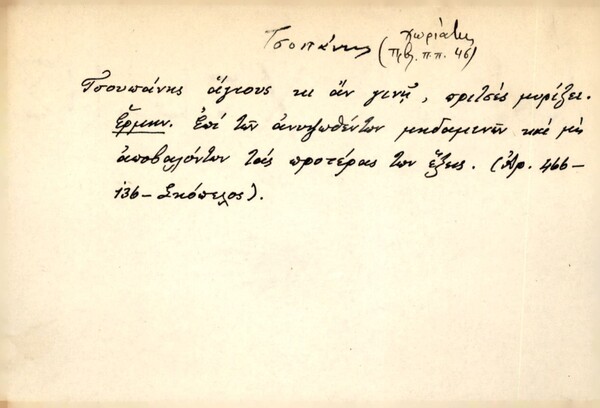 Τσοπάνης (χωριάτης
Πρβ. π.π. 46)
Τσουπάνης ἅγιους κι ἂν γινῇ, πριτσές μυρίζει.
Ἑρμην. Ἐπί τῶν ἀνυψωθέντων μηδαμινῶν καί μή
ἀποβαλόντων τάς προτέρας των ἕξεις. (Ἀρ. 466–
136 – Σκόπελος).